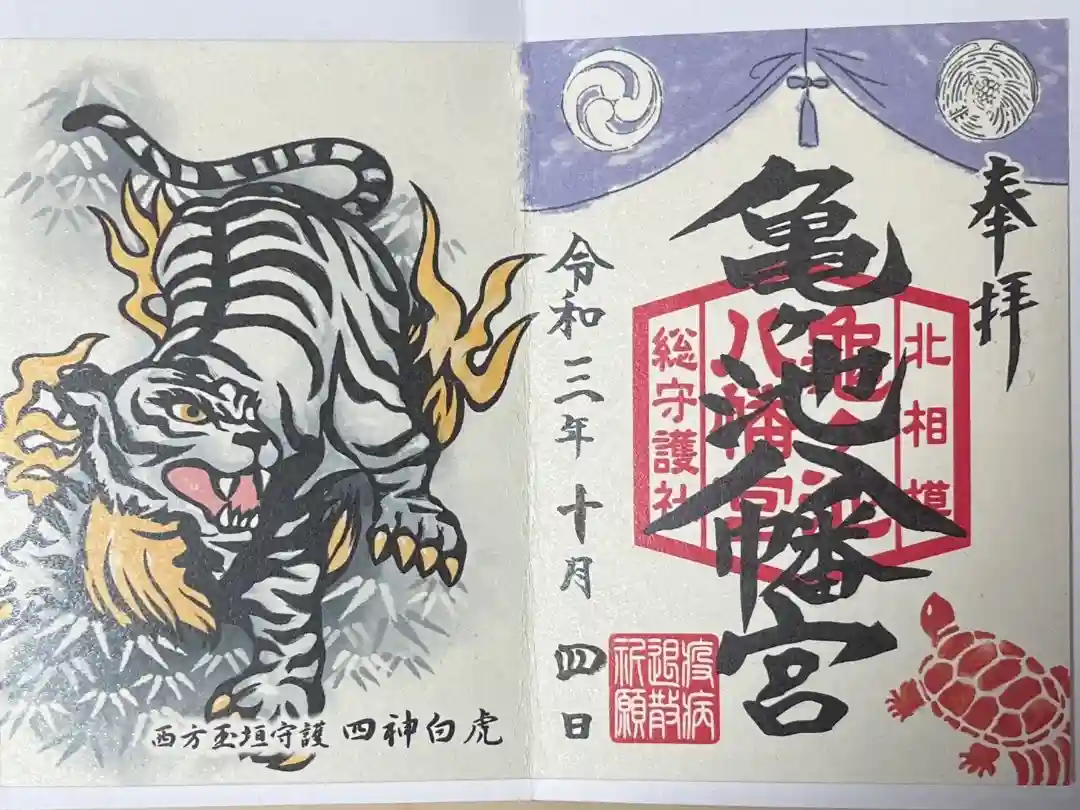 奉拝
亀ヶ池八幡宮
北相模
亀ヶ池
八幡宮
総守護社
疫病
退散
祈願
令和三年十月四日
西方玉垣守護 四神白虎